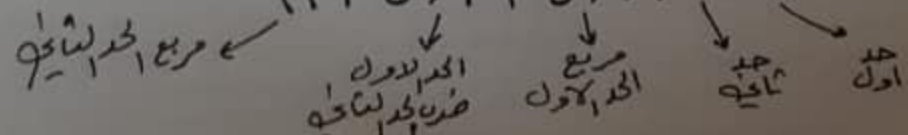 حد
أول
حد
ثاني
مربع
الحد الأول
الحد الأول
ضرب الحد الثاني
مربع الحد الثاني